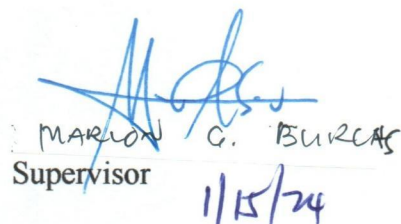 MARLON G. BURCAS
Supervisor
1/15/24